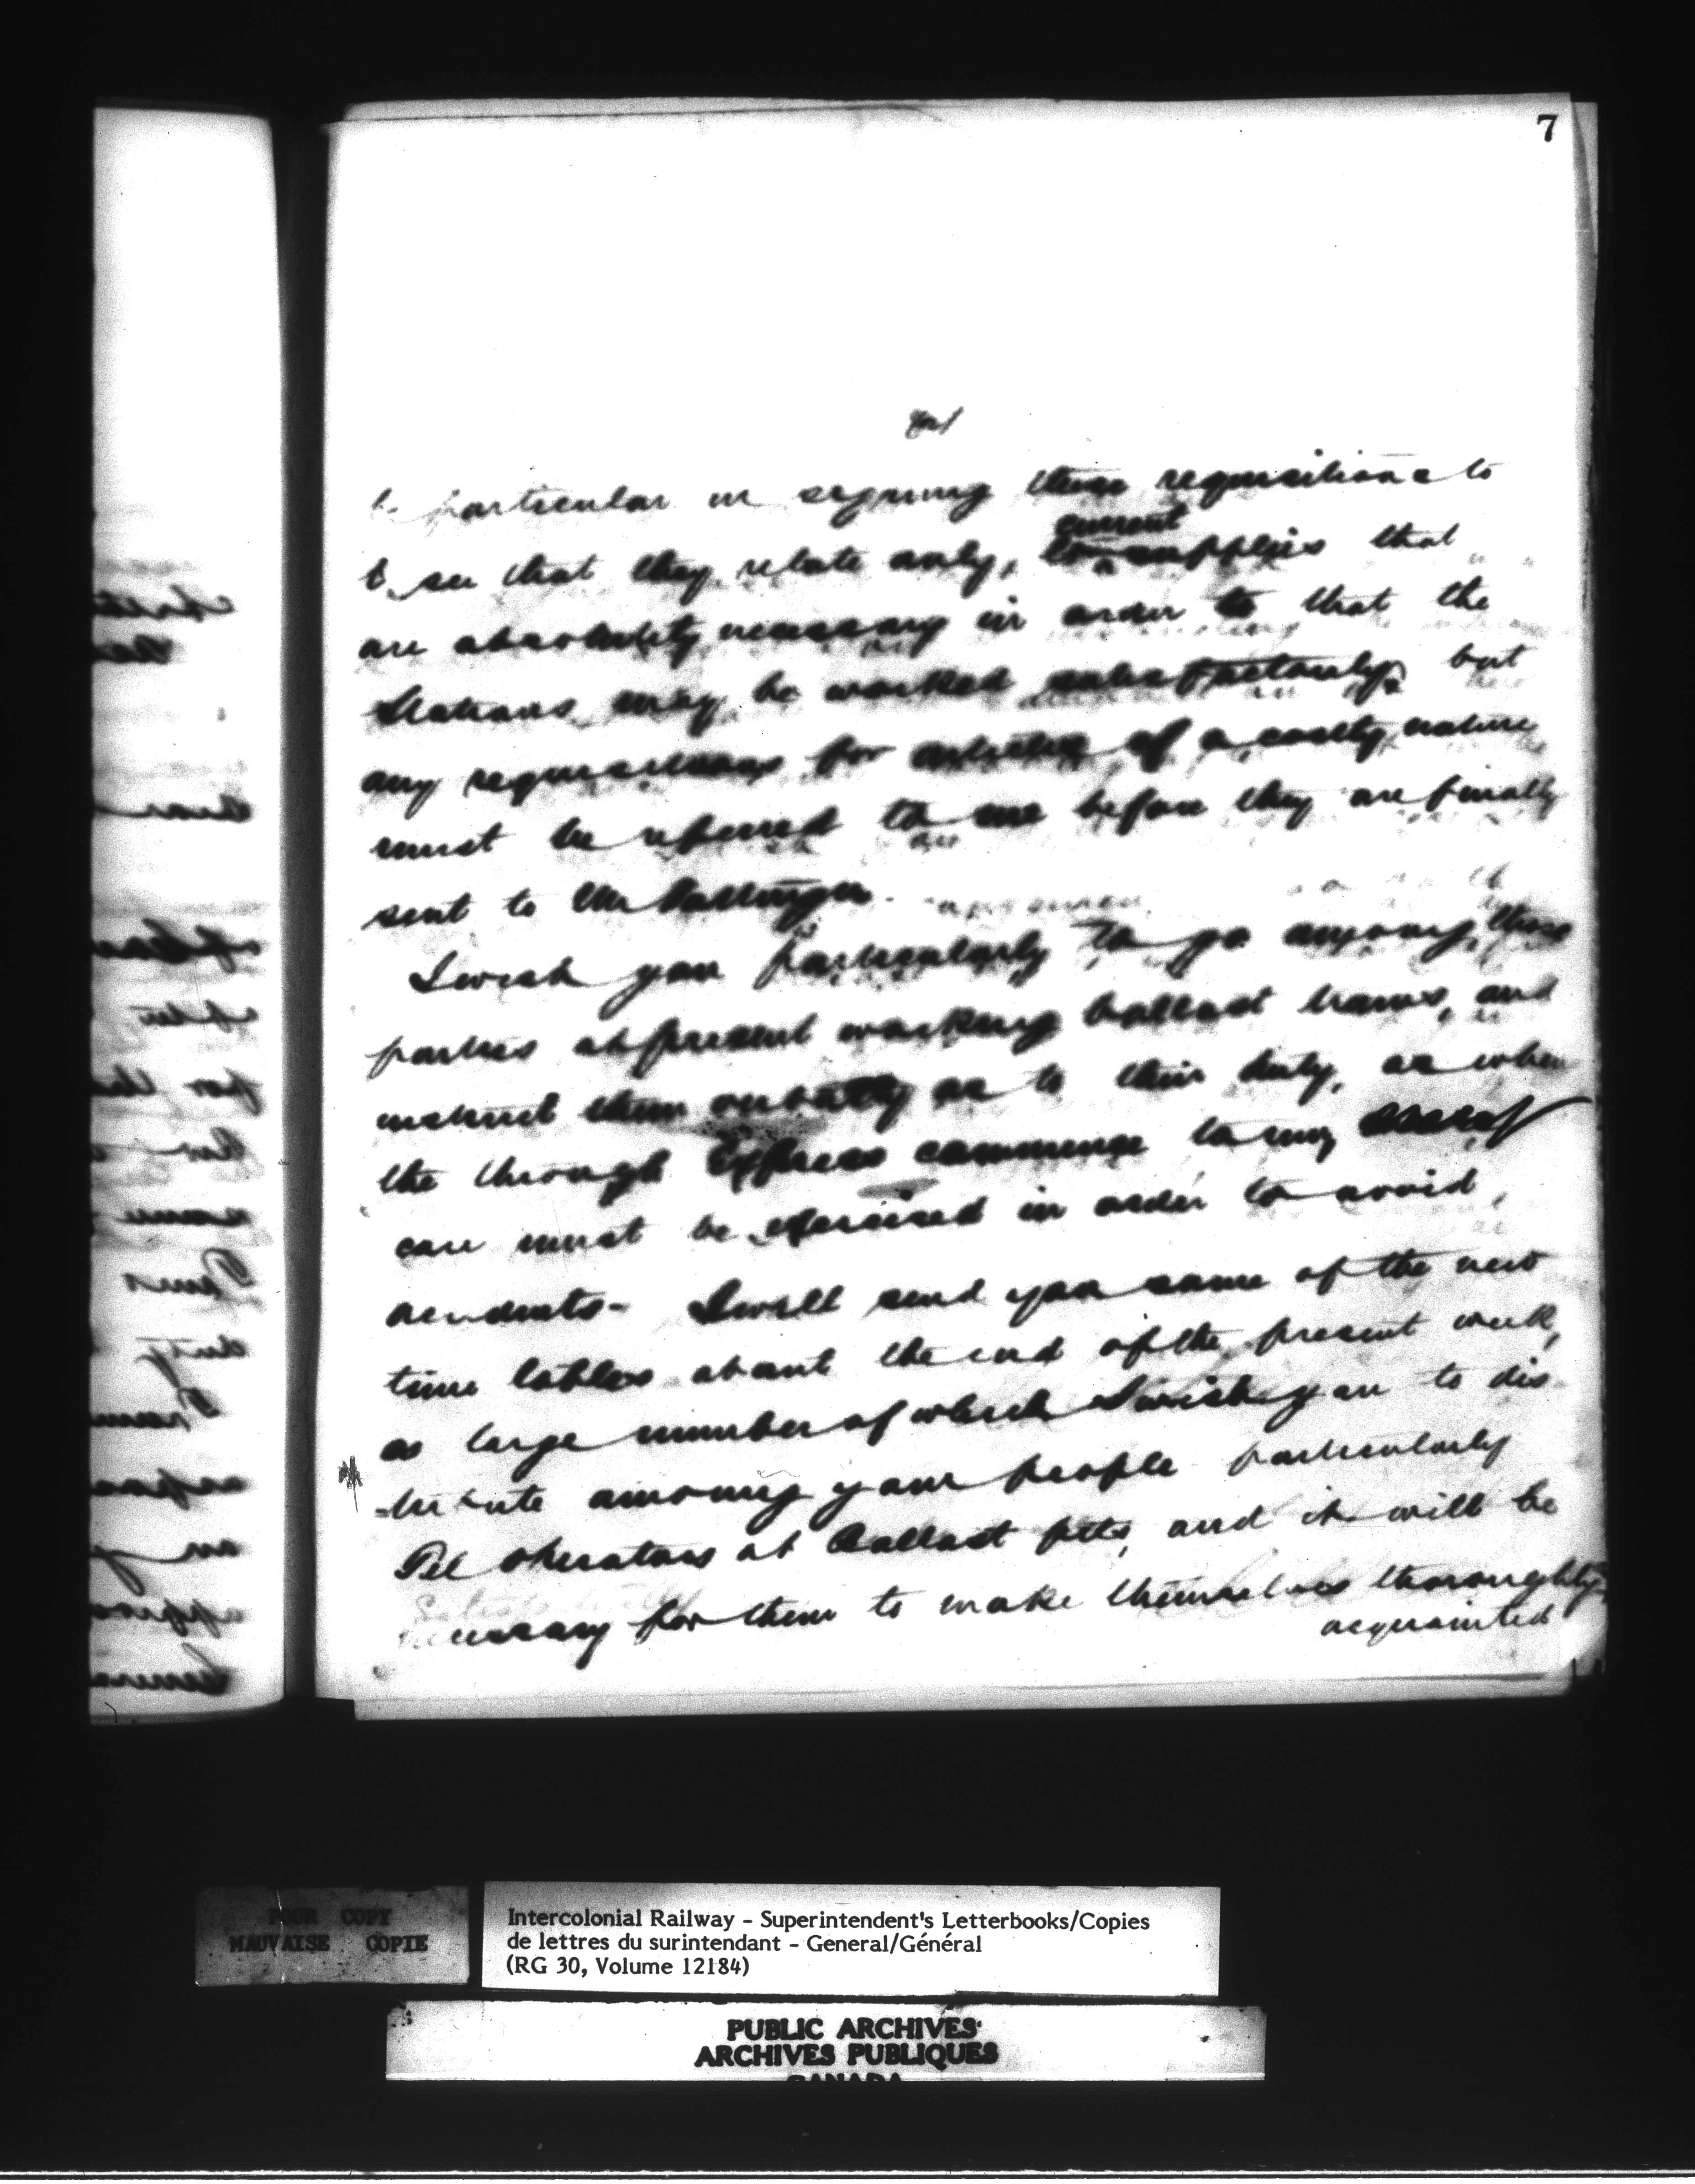 7
be particular in signing these requisitions to
to see that they relate only, to current supplies that
are absolutely necessary in order to that the
Stations may be worked satisfactorily, but
any requisitions for articles of a costly nature
must be referred to me before they are finally
sent to Mr Pottinger.
I wish you particularly to go among those
parties at present working ballast trains, and
instruct them verbally as to their duty, as when
the through Express commence to run
care must be exercised in order to avoid
accidents - I will send you some of the new
time tables about the end of the present week,
as large number of which I wish you to dis
-tribute among your people particularly
Tel Operators at Ballast pits, and it will be
necessary for them to make themselves thoroughly
acquainted
POOR COPY
MAUVAISE COPIE
Intercolonial Railway - Superintendent's Letterbooks/Copies
de lettres du surintendant - General/Général
(RG 30, Volume 12184)
PUBLIC ARCHIVES
ARCHIVES PUBLIQUES
CANADA